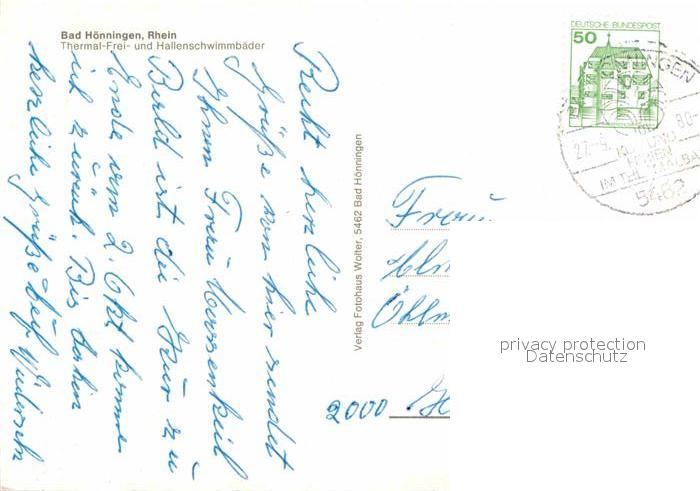 Bad Hönningen, Rhein
Thermal-Frei- und Hallenschwimmbäder
Recht herzliche
Grüße von hier sendet
Ihnen Frau
Bald ist die Kur zu
Ende am 2. Okt komme
ich zurück. Bis dahin
herzliche Grüße
Verlag Fotohaus Wolter, 5462 Bad Hönningen
DEUTSCHE BUNDESPOST
50
80
IM
5462
Frau
2000
privacy protection
Datenschutz